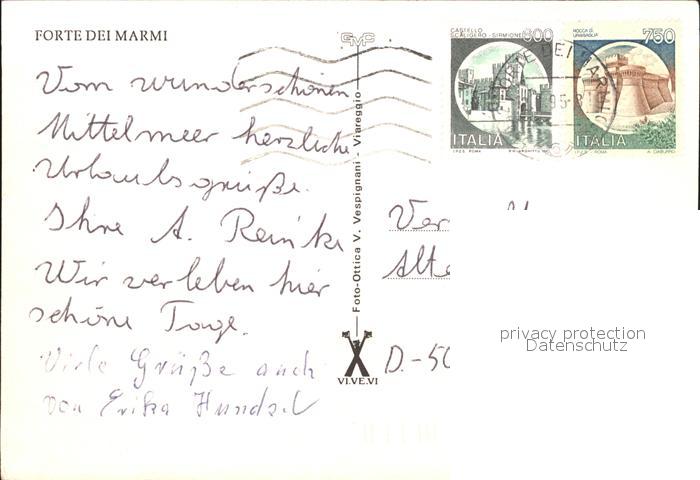 FORTE DEI MARMI
GMC
CASTELLO
SCALIGERO - SIRMIONE
800
ROCCA DI
URBISAGLIA
750
ITALIA
I.P.Z.S. ROMA
ITALIA
I.P.Z.S. - ROMA
FORTE DEI MARMI
95
Vom wunderschönen
Mittelmeer herzliche
Urlaubsgrüße.
Ihre A. Reinke
Wir verleben hier
schöne Tage.
Viele Grüße auch
von Erika
Foto-Ottica V. Vespignani - Viareggio
VI.VE.VI
Ver
Alte
D.-50
privacy protection
Datenschutz